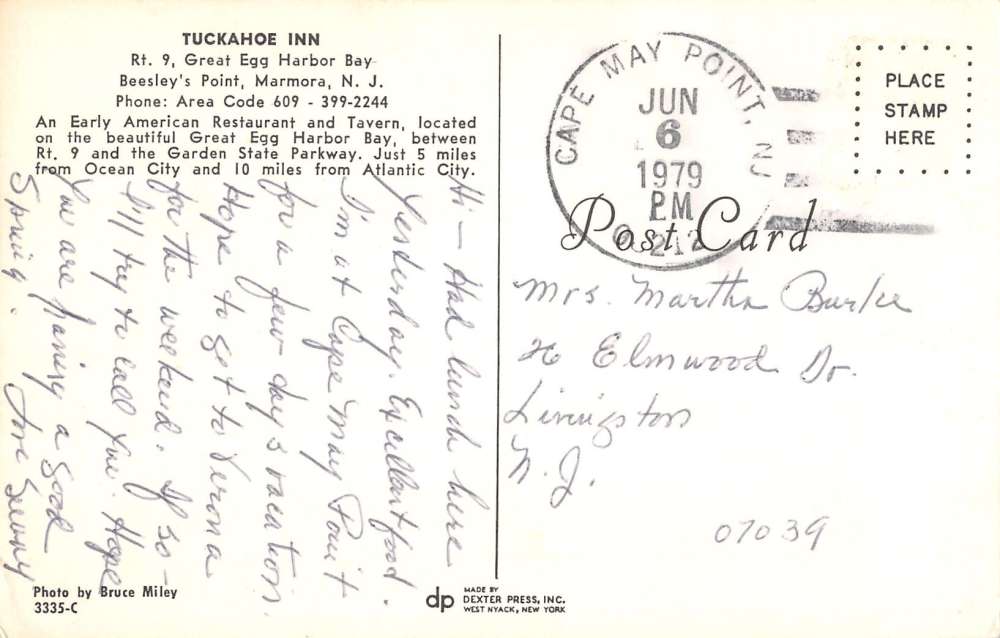 TUCKAHOE INN
Rt. 9, Great Egg Harbor Bay
Beesley's Point, Marmora, N. J.
Phone: Area Code 609 - 399-2244
An Early American Restaurant and Tavern, located
on the beautiful Great Egg Harbor Bay, between
Rt. 9 and the Garden State Parkway. Just 5 miles
from Ocean City and 10 miles from Atlantic City.
Hi - Had lunch here
Yesterday. Excellent food.
I'm at Cape May Point
for a few days vacation.
Hope to get to Verona
for the weekend. If so -
I'll try to call you. Hope
You are having a good
Spring.
Photo by Bruce Miley
3335-C
CAPE MAY POINT, NJ
JUN
6
1979
PM
PLACE
STAMP
HERE
Post Card
Mrs. Martha Burke
Elmwood Dr.
Livingston
N.J.
07039
dp
MADE BY
DEXTER PRESS, INC.
WEST NYACK, NEW YORK